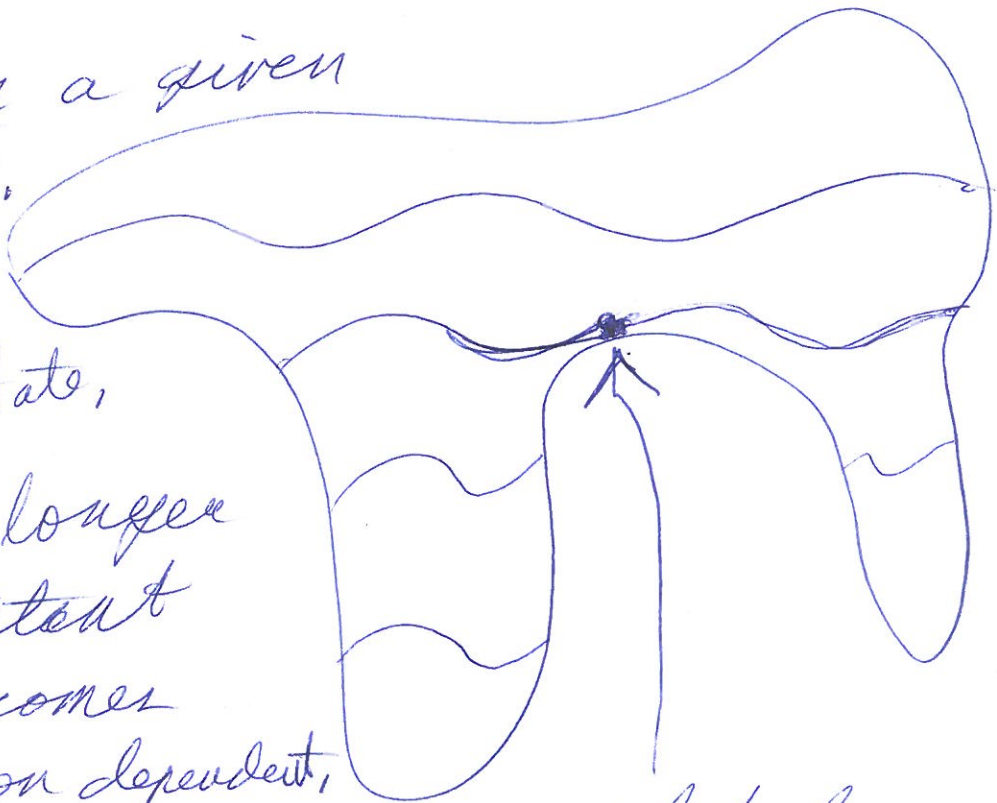 a given
ate,
longer
tant
comes
on dependent,